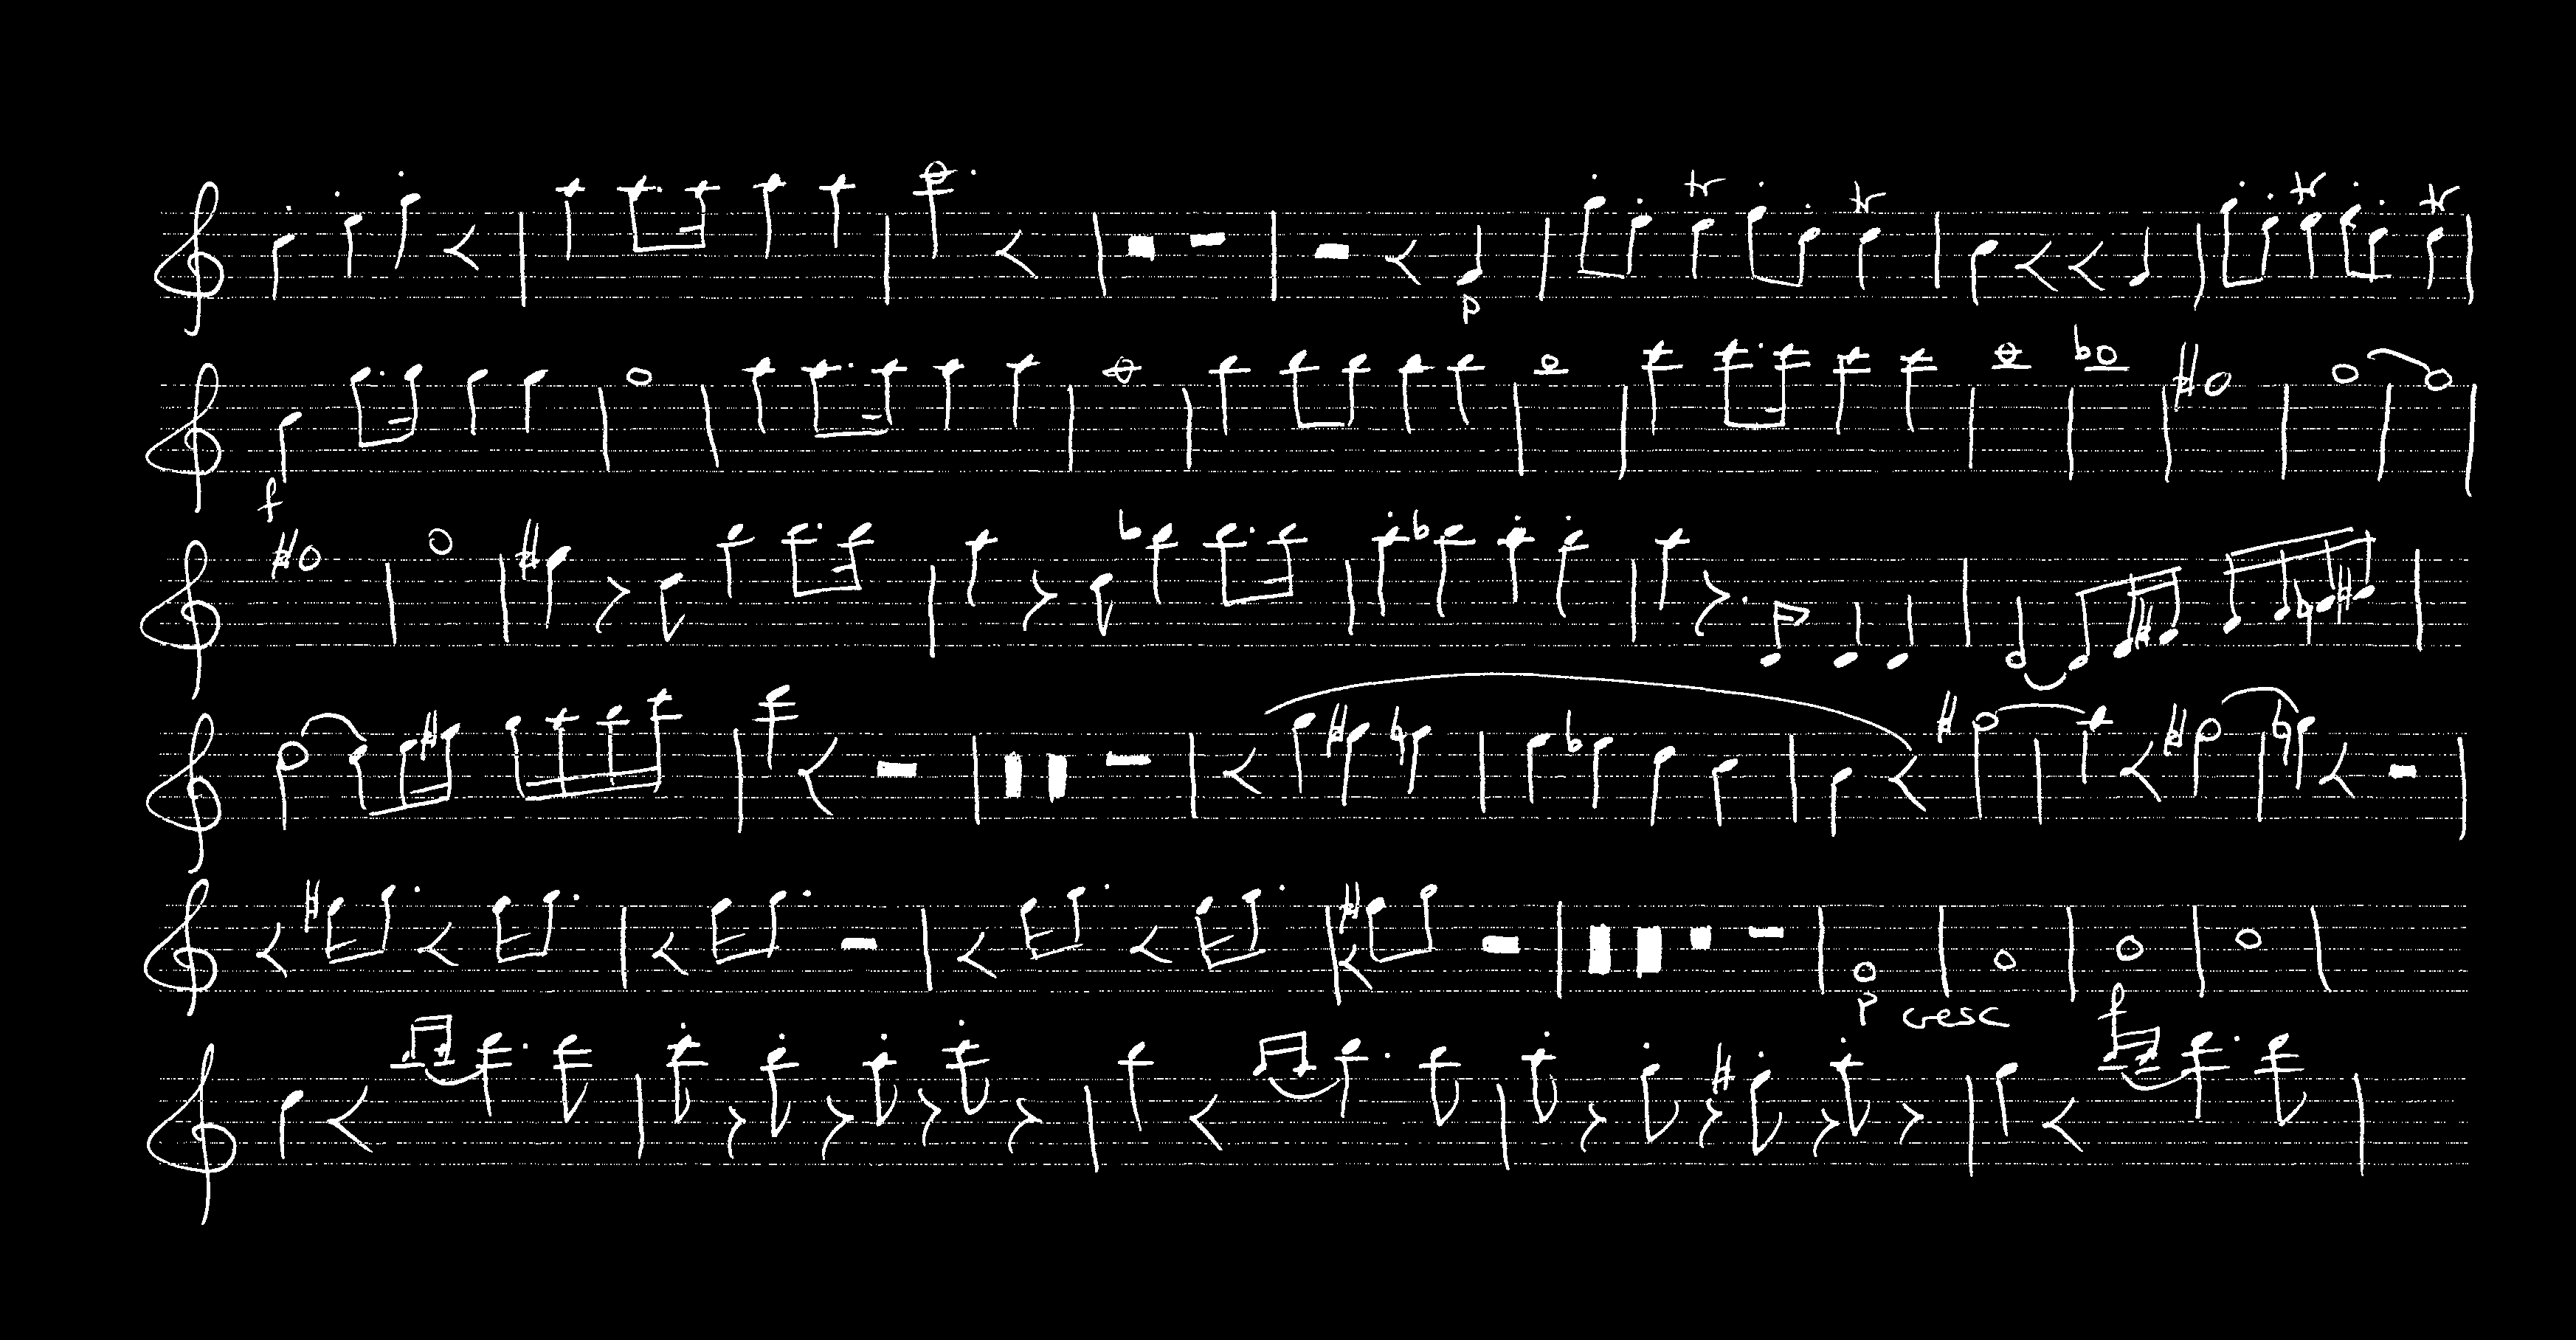 tr tr tr tr
p
f
p cresc
f